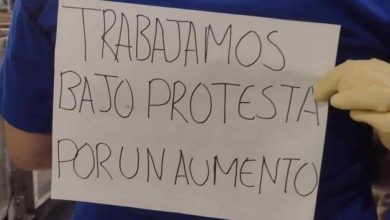 TRABAJAMOS
BAJO PROTESTA
POR UN AUMENTO